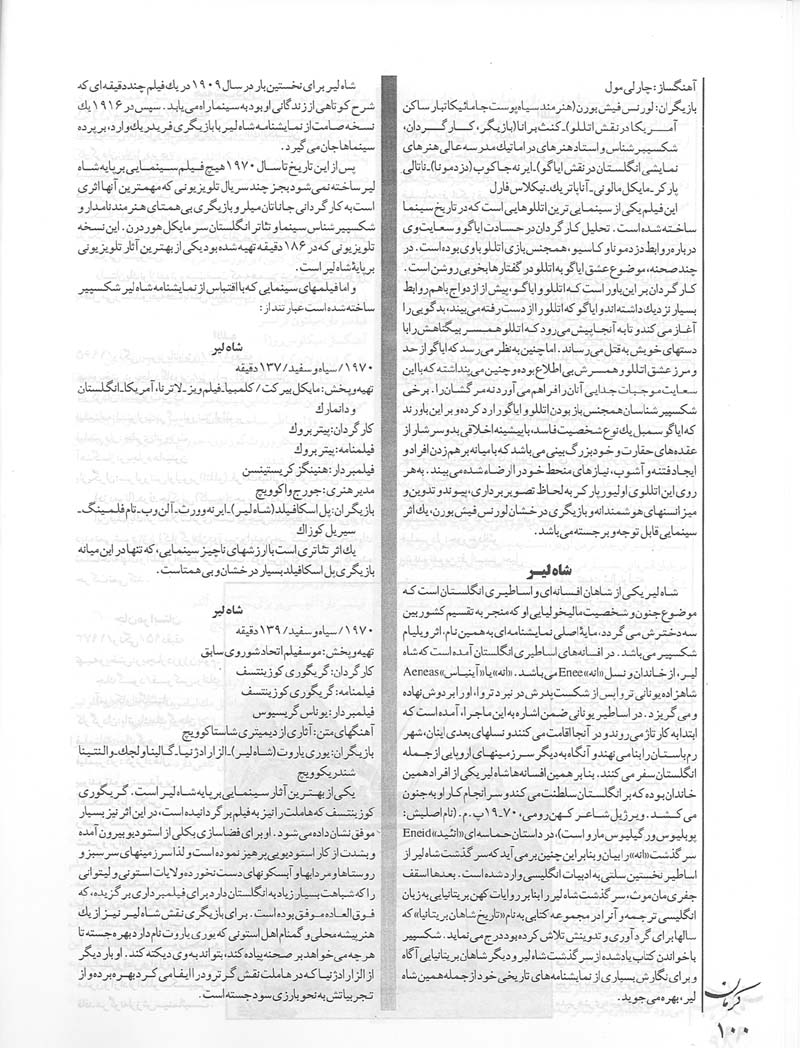 آهنگساز: چارلی مول
بازیگران: لورنس فیش بورن (هنرمند سیاه پوست جامائیکا تبار ساکن
آمریکا در نقش اتللو)ـ کنث برانا (بازیگر، کارگردان،
شکسپیر شناس و استاد هنرهای دراماتیک مدرسه عالی هنرهای
نمایشی انگلستان در نقش ایاگو)ـ ایرنه جاکوب (دزدمونا)ـ ناتالی
پارکر ـ مایکل مالونی ـ آنا پاتریک ـ نیکلاس فارل
این فیلم یکی از سینمایی ترین اتللوهایی است که در تاریخ سینما
ساخته شده است. تحلیل کارگردان در حسادت ایاگو و سعایت وی
درباره روابط دزدمونا و کاسیو، همجنس بازی اتللو با وی بوده است. در
چند صحنه، موضوع عشق ایاگو به اتللو در گفتارها بخوبی روشن است.
کارگردان بر این باور است که اتللو و ایاگو، پیش از ازدواج با هم روابط
بسیار نزدیک داشته اند و ایاگو که اتللو را از دست رفته می بیند، بدگویی را
آغاز می کند و تا به آنجا پیش می رود که اتللو همسر بیگناهش را با
دستهای خویش به قتل می رساند. اما چنین به نظر می رسد که ایاگو از حد
و مرز عشق اتللو و همسرش بی اطلاع بوده و چنین می پنداشته که با این
سعایت موجبات جدایی آنان را فراهم می آورد نه مرگشان را. برخی
شکسپیر شناسان همجنس باز بودن اتللو و ایاگو را رد کرده و بر این باورند
که ایاگو سمبل یک نوع شخصیت فاسد، با پیشینه اخلاقی بد و سرشار از
عقده های حقارت و خود بزرگ بینی می باشد که با میانه بر هم زدن افراد و
ایجاد فتنه و آشوب، نیازهای منحط خود را ارضاء شده می بیند. به هر
روی این اتللوی اولیور پارکر به لحاظ تصویر برداری، پیوند و تدوین و
میزانسنهای هوشمندانه و بازیگری درخشان لورنس فیش بورن، یک اثر
سینمایی قابل توجه و برجسته می باشد.
شاه لیر
شاه لیر یکی از شاهان افسانه ای و اساطیری انگلستان است که
موضوع جنون و شخصیت مالیخولیایی او که منجر به تقسیم کشور بین
سه دخترش می گردد، مایۀ اصلی نمایشنامه ای به همین نام، اثر ویلیام
شکسپیر می باشد. در افسانه های اساطیری انگلستان آمده است که شاه
لیر، از خاندان و نسل «انه» Enee می باشد. «انه» یا «آینیاس» Aeneas
شاهزاده یونانی تروا پس از شکست پدرش در نبرد تروا، او را بر دوش نهاده
و می گریزد. در اساطیر یونانی ضمن اشاره به این ماجرا، آمده است که
ابتدا به کارتاژ می روند و در آنجا اقامت می کنند و نسلهای بعدی اینان، شهر
رم باستان را بنا می نهند و آنگاه به دیگر سرزمینهای اروپایی از جمله
انگلستان سفر می کنند. بنابر همین افسانه ها شاه لیر یکی از افراد همین
خاندان بوده که بر انگلستان سلطنت می کند و سرانجام کار او به جنون
می کشد. ویرژیل شاعر کهن رومی، ۷۰ـ۱۹ پ.م. (نام اصلیش:
پوبلیوس ورگیلیوس مارو است)، در داستان حماسه ای «انئید» Eneid
سرگذشت «انه» را بیان و بنابر این چنین بر می آید که سرگذشت شاه لیر از
اساطیر نخستین سلتی به ادبیات انگلیسی وارد شده است. بعدها اسقف
جفری مان موث، سرگذشت شاه لیر را بنابر روایات کهن بریتانیایی به زبان
انگلیسی ترجمه و آنرا در مجموعه کتابی به نام «تاریخ شاهان بریتانیا» که
سالها برای گردآوری و تدوینش تلاش کرده بود درج می نماید. شکسپیر
با خواندن کتاب یاد شده از سرگذشت شاه لیر و دیگر شاهان بریتانیایی آگاه
و برای نگارش بسیاری از نمایشنامه های تاریخی خود از جمله همین شاه
لیر، بهره می جوید.
شاه لیر برای نخستین بار در سال ۱۹۰۹ در یک فیلم چند دقیقه ای که
شرح کوتاهی از زندگانی او بود به سینما راه می یابد. سپس در ۱۹۱۶ یک
نسخه صامت از نمایشنامه شاه لیر با بازیگری فریدریک وارد، بر پرده
سینماها جان می گیرد.
پس از این تاریخ تا سال ۱۹۷۰ هیچ فیلم سینمایی بر پایه شاه
لیر ساخته نمی شود بجز چند سریال تلویزیونی که مهمترین آنها اثری
است به کارگردانی جاناتان میلر و بازیگری بی همتای هنرمند نامدار و
شکسپیر شناس سینما و تئاتر انگلستان سر مایکل هوردرن. این نسخه
تلویزیونی که در ۱۸۶ دقیقه تهیه شده بود یکی از بهترین آثار تلویزیونی
بر پایۀ شاه لیر است.
و اما فیلمهای سینمایی که با اقتباس از نمایشنامه شاه لیر شکسپیر
ساخته شده است عبارتند از:
شاه لیر
۱۹۷۰/ سیاه و سفید/ ۱۳۷ دقیقه
تهیه و پخش: مایکل بیرکت/ کلمبیا ـ فیلم ویز ـ لاترنا، آمریکا ـ انگلستان
و دانمارک
کارگردان: پیتر بروک
فیلمنامه: پیتر بروک
فیلمبردار: هنینگز کریستینسن
مدیر هنری: جورج واکوویچ
بازیگران: پل اسکافیلد (شاه لیر)ـ ایرنه وورث ـ آلن وب ـ تام فلمینگ ـ
سیریل کوزاک
یک اثر تئاتری است با ارزشهای ناچیز سینمایی، که تنها در این میانه
بازیگری پل اسکافیلد بسیار درخشان و بی همتاست.
شاه لیر
۱۹۷۰/ سیاه و سفید/ ۱۳۹ دقیقه
تهیه و پخش: موسفیلم اتحاد شوروی سابق
کارگردان: گریگوری کوزینتسف
فیلمنامه: گریگوری کوزینتسف
فیلمبردار: یوناس گریسیوس
آهنگهای متن: آثاری از دیمیتری شاستاکوویچ
بازیگران: یوری یاروت (شاه لیر)ـ الزا رادژنیا ـ گالینا ولچک ـ والنتینا
شندریکوویچ
یکی از بهترین آثار سینمایی بر پایه شاه لیر است. گریگوری
کوزینتسف که هاملت را نیز به فیلم برگردانیده است، در این اثر نیز بسیار
موفق نشان داده می شود. او برای فضاسازی بکلی از استودیو بیرون آمده
و بشدت از کار استودیویی پرهیز نموده است و لذا سرزمینهای سرسبز و
روستاها و مردابها و آبسکونهای دست نخورده ولایات استونی و لیتوانی
را که شباهت بسیار زیاد به انگلستان دارد برای فیلمبرداری برگزیده، که
فوق العاده موفق بوده است. برای بازیگری نقش شاه لیر نیز از یک
هنرپیشه محلی و گمنام اهل استونی که یوری یاروت نام دارد بهره جسته تا
هر چه می خواهد بر صحنه پیاده کند، بتواند به وی دیکته کند. او بار دیگر
از الزا رادژنیا که در هاملت نقش گرترود را ایفا می کرد بهره برده و از
تجربیاتش به نحو بارزی سود جسته است.
کرمان
۱۰۰